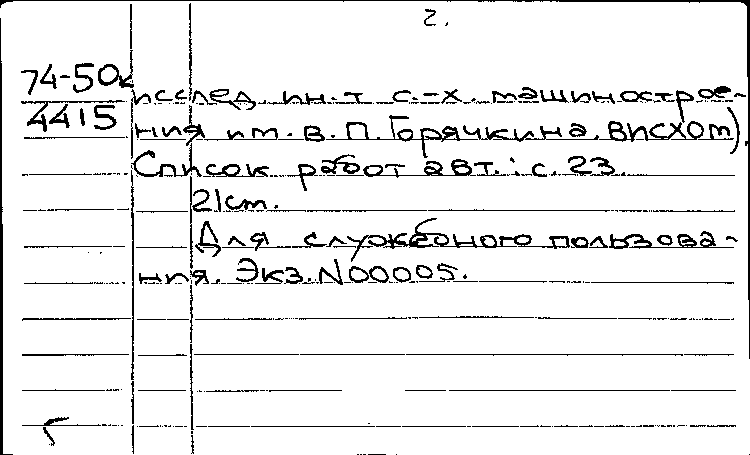 2.
74-50к
4415
исслед. ин-т с.-х. машинострое-
ния им. В. П. Горячкина. ВИСХОМ).
Список работ авт.: с. 23.
21см.
Для служебного пользова-
ния. Экз. N00005.